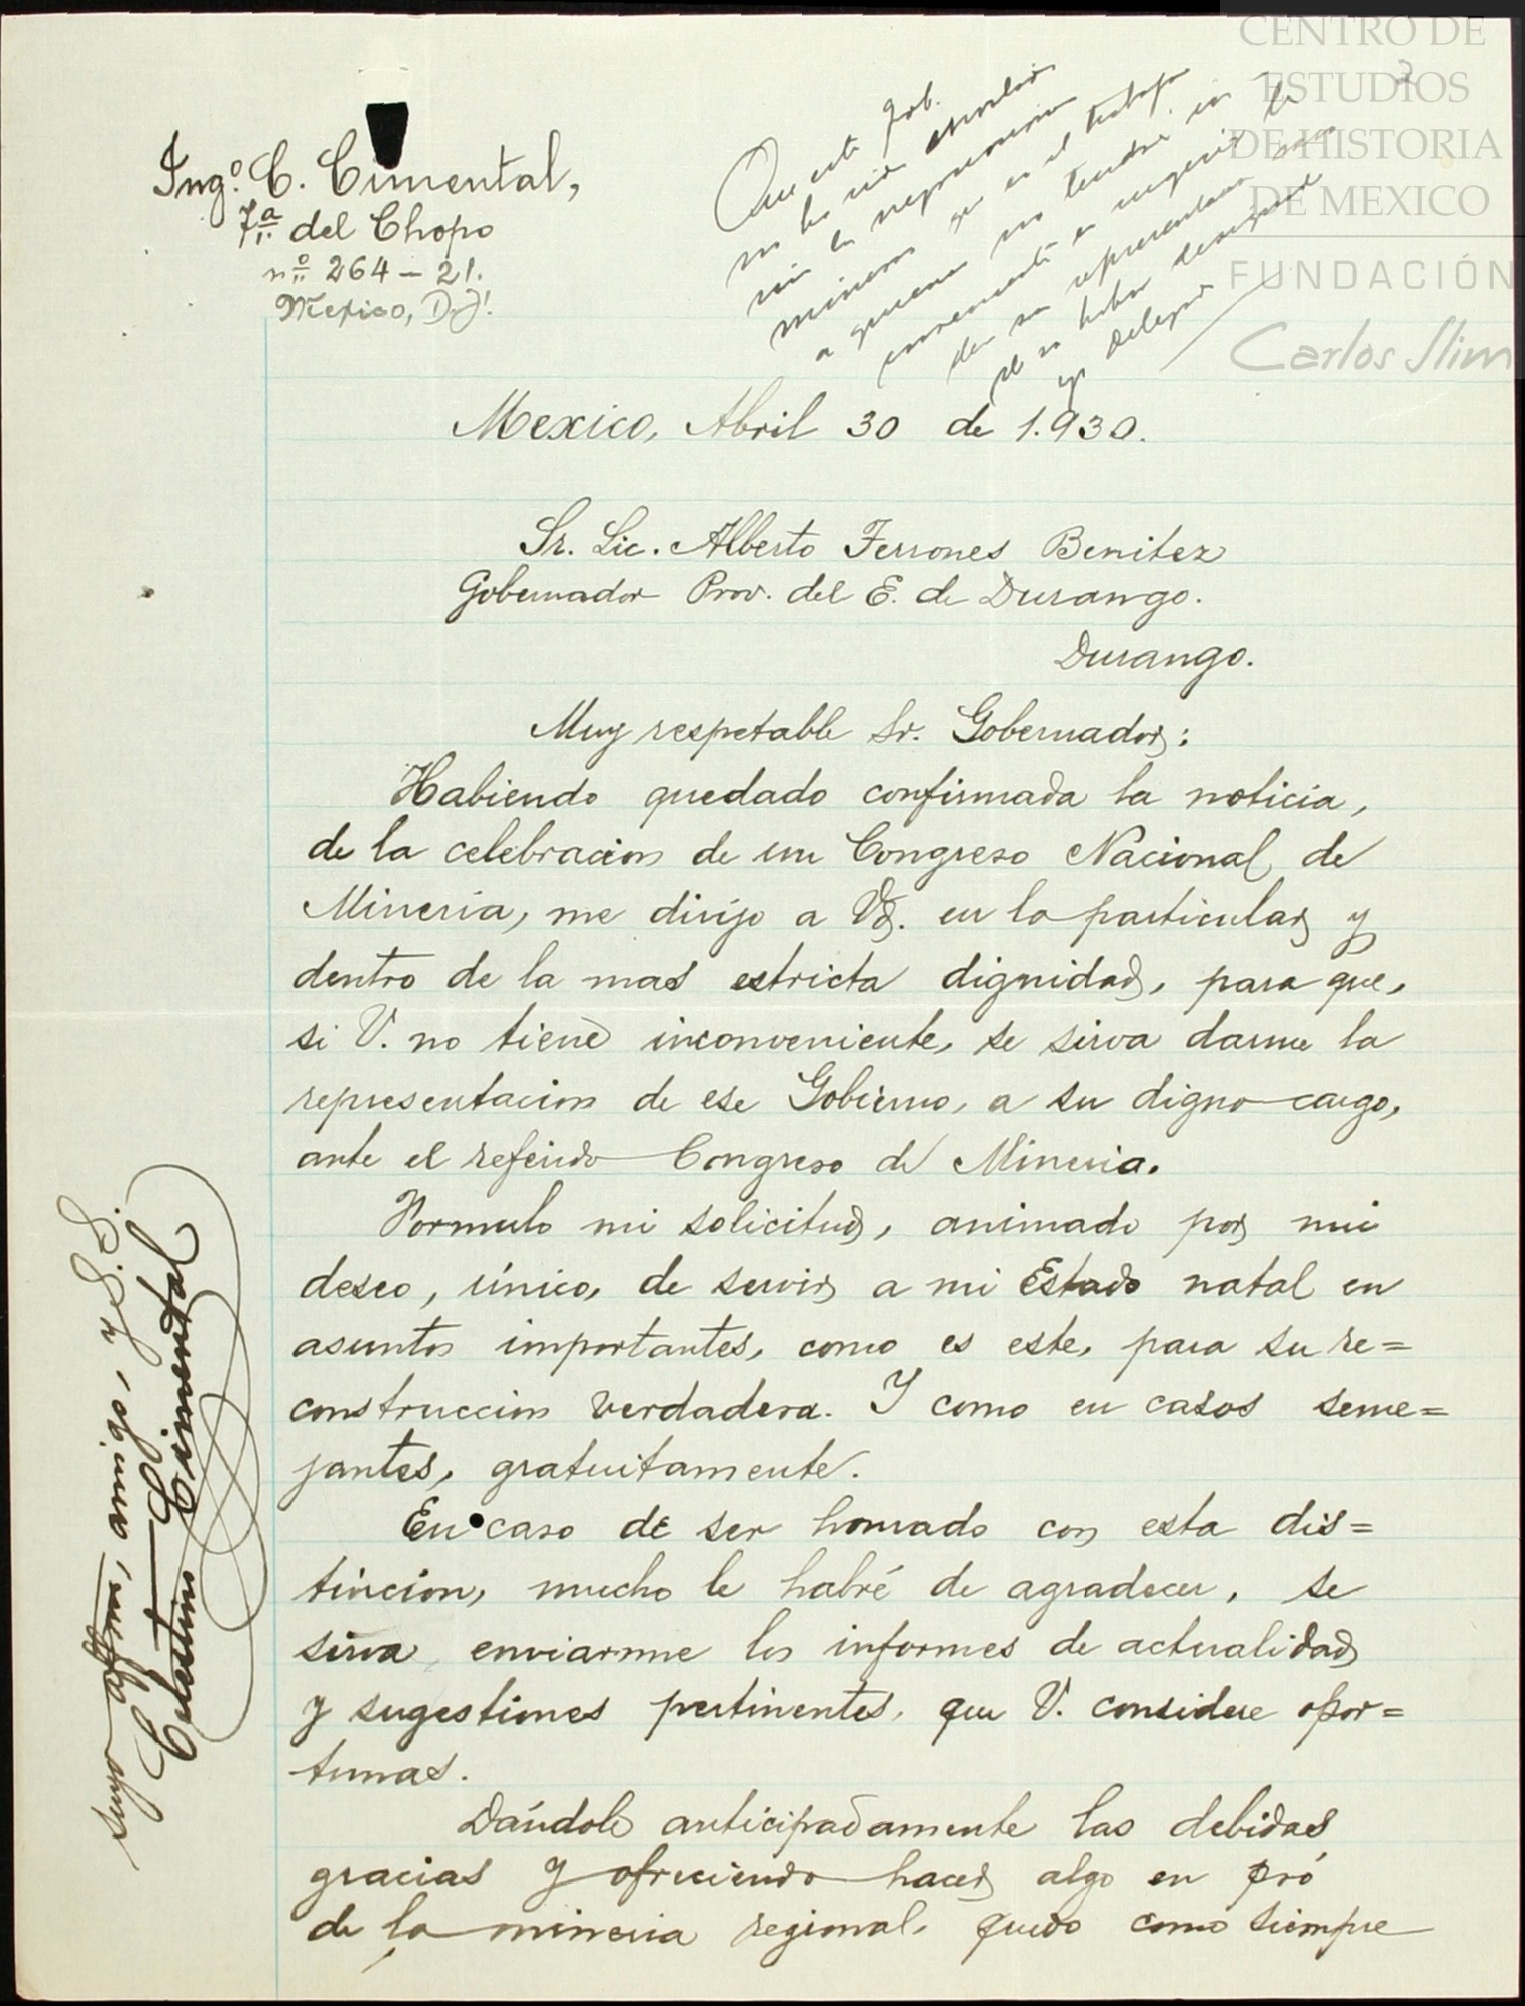 Ing.º C. Cimental,
7ª del Chopo
nº 264 - 21.
Mexico, D.F.
Que este Gob.
no ha sido
minera que en el trabajo
a quienes no tendré
inconveniente en sugerir le
den su representacion
si no hubiere designado
un delegado
CENTRO DE
ESTUDIOS
DE HISTORIA
DE MEXICO
FUNDACIÓN
Carlos Slim
2
Mexico, Abril 30 de 1.930.
Sr. Lic. Alberto Terrones Benitez
Gobernador Prov. del E. de Durango.
Durango.
Muy respetable Sr. Gobernador:
Habiendo quedado confirmada la noticia,
de la celebracion de un Congreso Nacional de
Mineria, me dirijo a Vd. en lo particular y
dentro de la mas estricta dignidad, para que,
si V. no tiene inconveniente, se sirva darme la
representacion de ese Gobierno, a su digno cargo,
ante el referido Congreso de Mineria.
Formulo mi solicitud, animado por mi
deseo, único, de servir a mi Estado natal en
asuntos importantes, como es este, para su re=
construccion verdadera. Y como en casos seme=
jantes, gratuitamente.
En caso de ser honrado con esta dis=
tincion, mucho le habré de agradecer, se
sirva enviarme los informes de actualidad
y sugestiones pertinentes, que V. considere opor=
tunas.
Dándole anticipadamente las debidas
gracias y ofreciendo hacer algo en pró
de la mineria regional, quedo como siempre
suyo affmo, amigo, y S.S.
Celestino Cimental